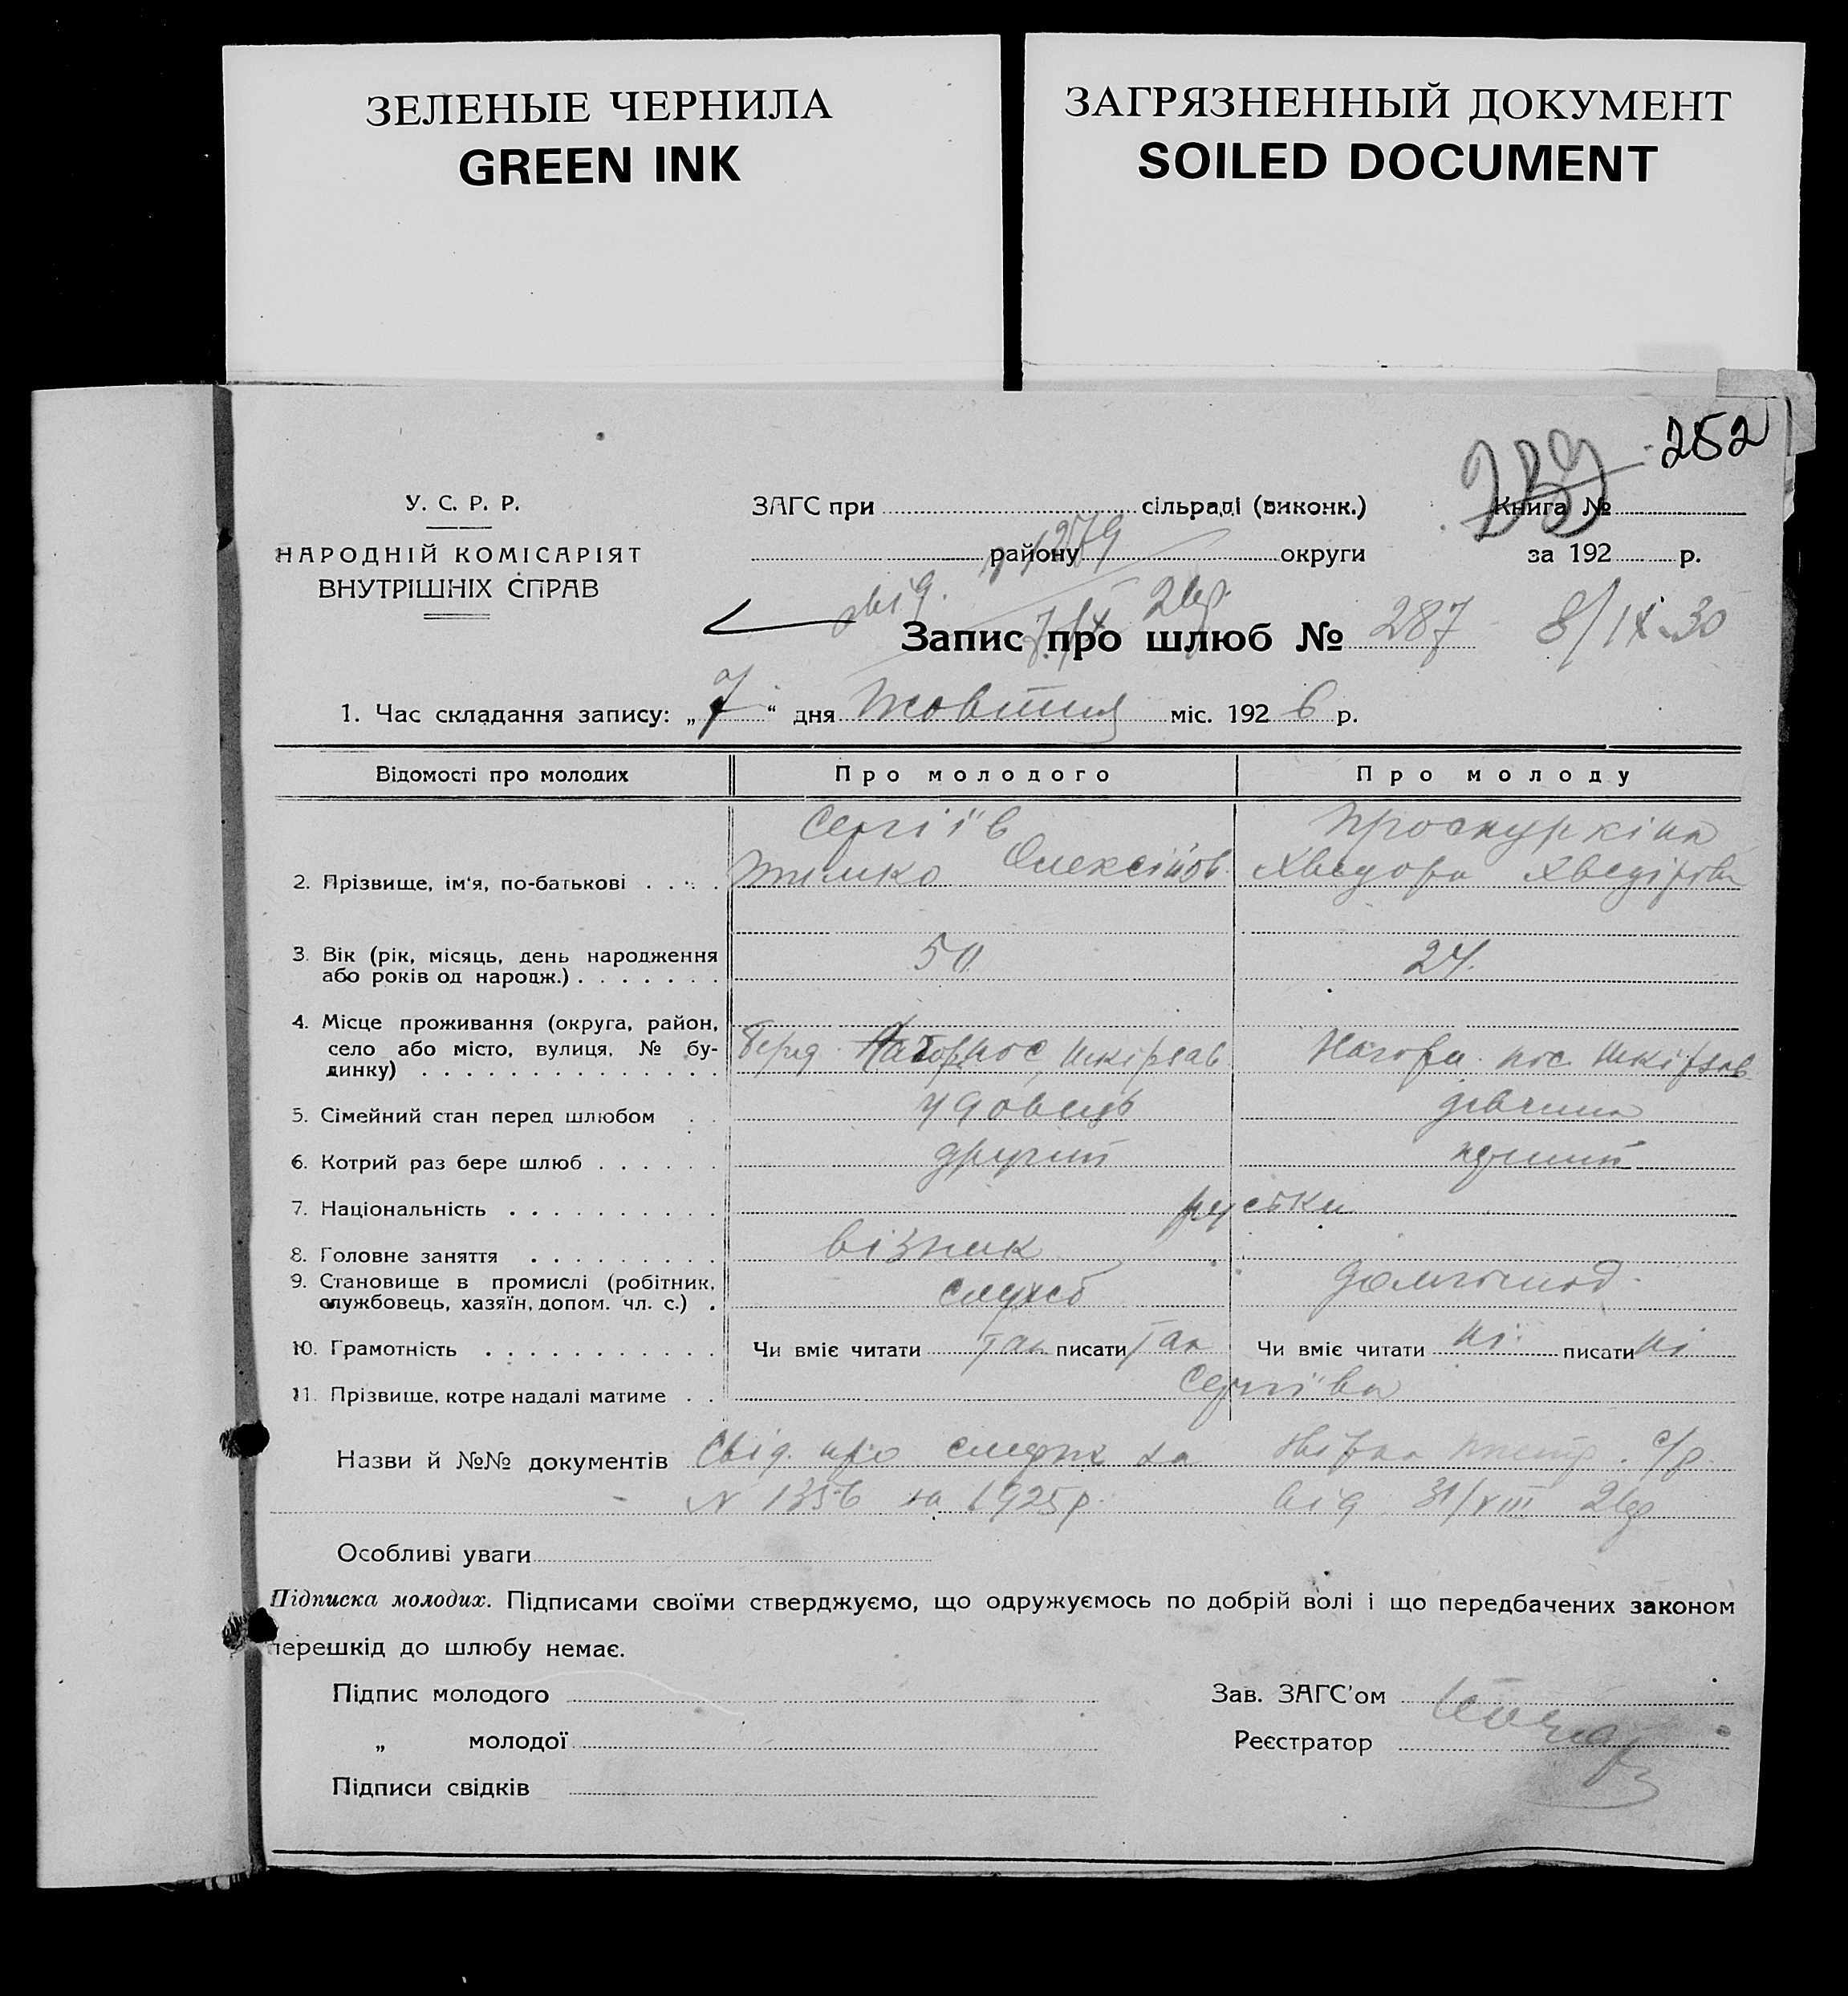 ЗЕЛЕНЫЕ ЧЕРНИЛА
GREEN INK
ЗАГРЯЗНЕННЫЙ ДОКУМЕНТ
SOILED DOCUMENT
252
У. С. Р. Р.
НАРОДНІЙ КОМІСАРІЯТ
ВНУТРІШНІХ СПРАВ
ЗАГС при сільраді (виконк.)
району округи
Книга №
за 192 р.
1279
Запис про шлюб № 287 8/IX-30
1. Час складання запису: „7“ дня Жовтня міс. 1926 р.
Відомості про молодих
Про молодого
Про молоду
2. Прізвище, ім‘я, по-батькові . . . .
Сергіїв
Тимко Олексійов
Проскуркіна
Хведора Хведірівн
3. Вік (рік, місяць, день народження
або років од народж.) . . . . . . .
50
24
4. Місце проживання (округа, район,
село або місто, вулиця, № бу-
динку) . . . . . . . . . . . . . .
пос, шкірзав
Нагорн. пос. шкірзав
5. Сімейний стан перед шлюбом . .
удовець
дівчина
6. Котрий раз бере шлюб . . . . . .
другий
перший
7. Національність . . . . . . . . . .
руськи
8. Головне заняття . . . . . . . . .
візник
9. Становище в промислі (робітник,
службовець, хазяїн, допом. чл. с.) .
служб
домгоспод.
10. Грамотність . . . . . . . . . . .
Чи вміє читати так писати так
Чи вміє читати ні писати ні
11. Прізвище, котре надалі матиме . .
Сергіїва
Назви й №№ документів Свід. про за с/р.
N 1356 за 1925 р. від 31/VIII 26р
Особливі уваги
Підписка молодих. Підписами своїми стверджуємо, що одружуємось по добрій волі і що передбачених законом
перешкід до шлюбу немає.
Підпис молодого
„ молодої
Підписи свідків
Зав. ЗАГС’ом
Реєстратор